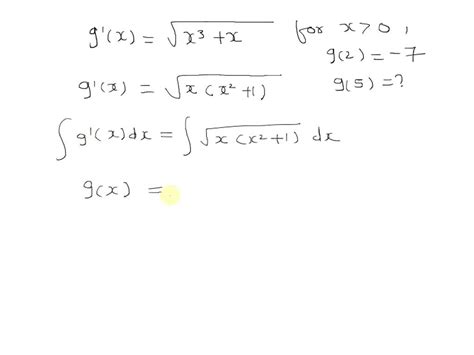 g'(x) = √(x³ + x) for x > 0 ,
g(2) = -7
g'(x) = √(x (x² + 1)) g(5) = ?
∫ g'(x) dx = ∫ √(x (x² + 1)) dx
g(x) =